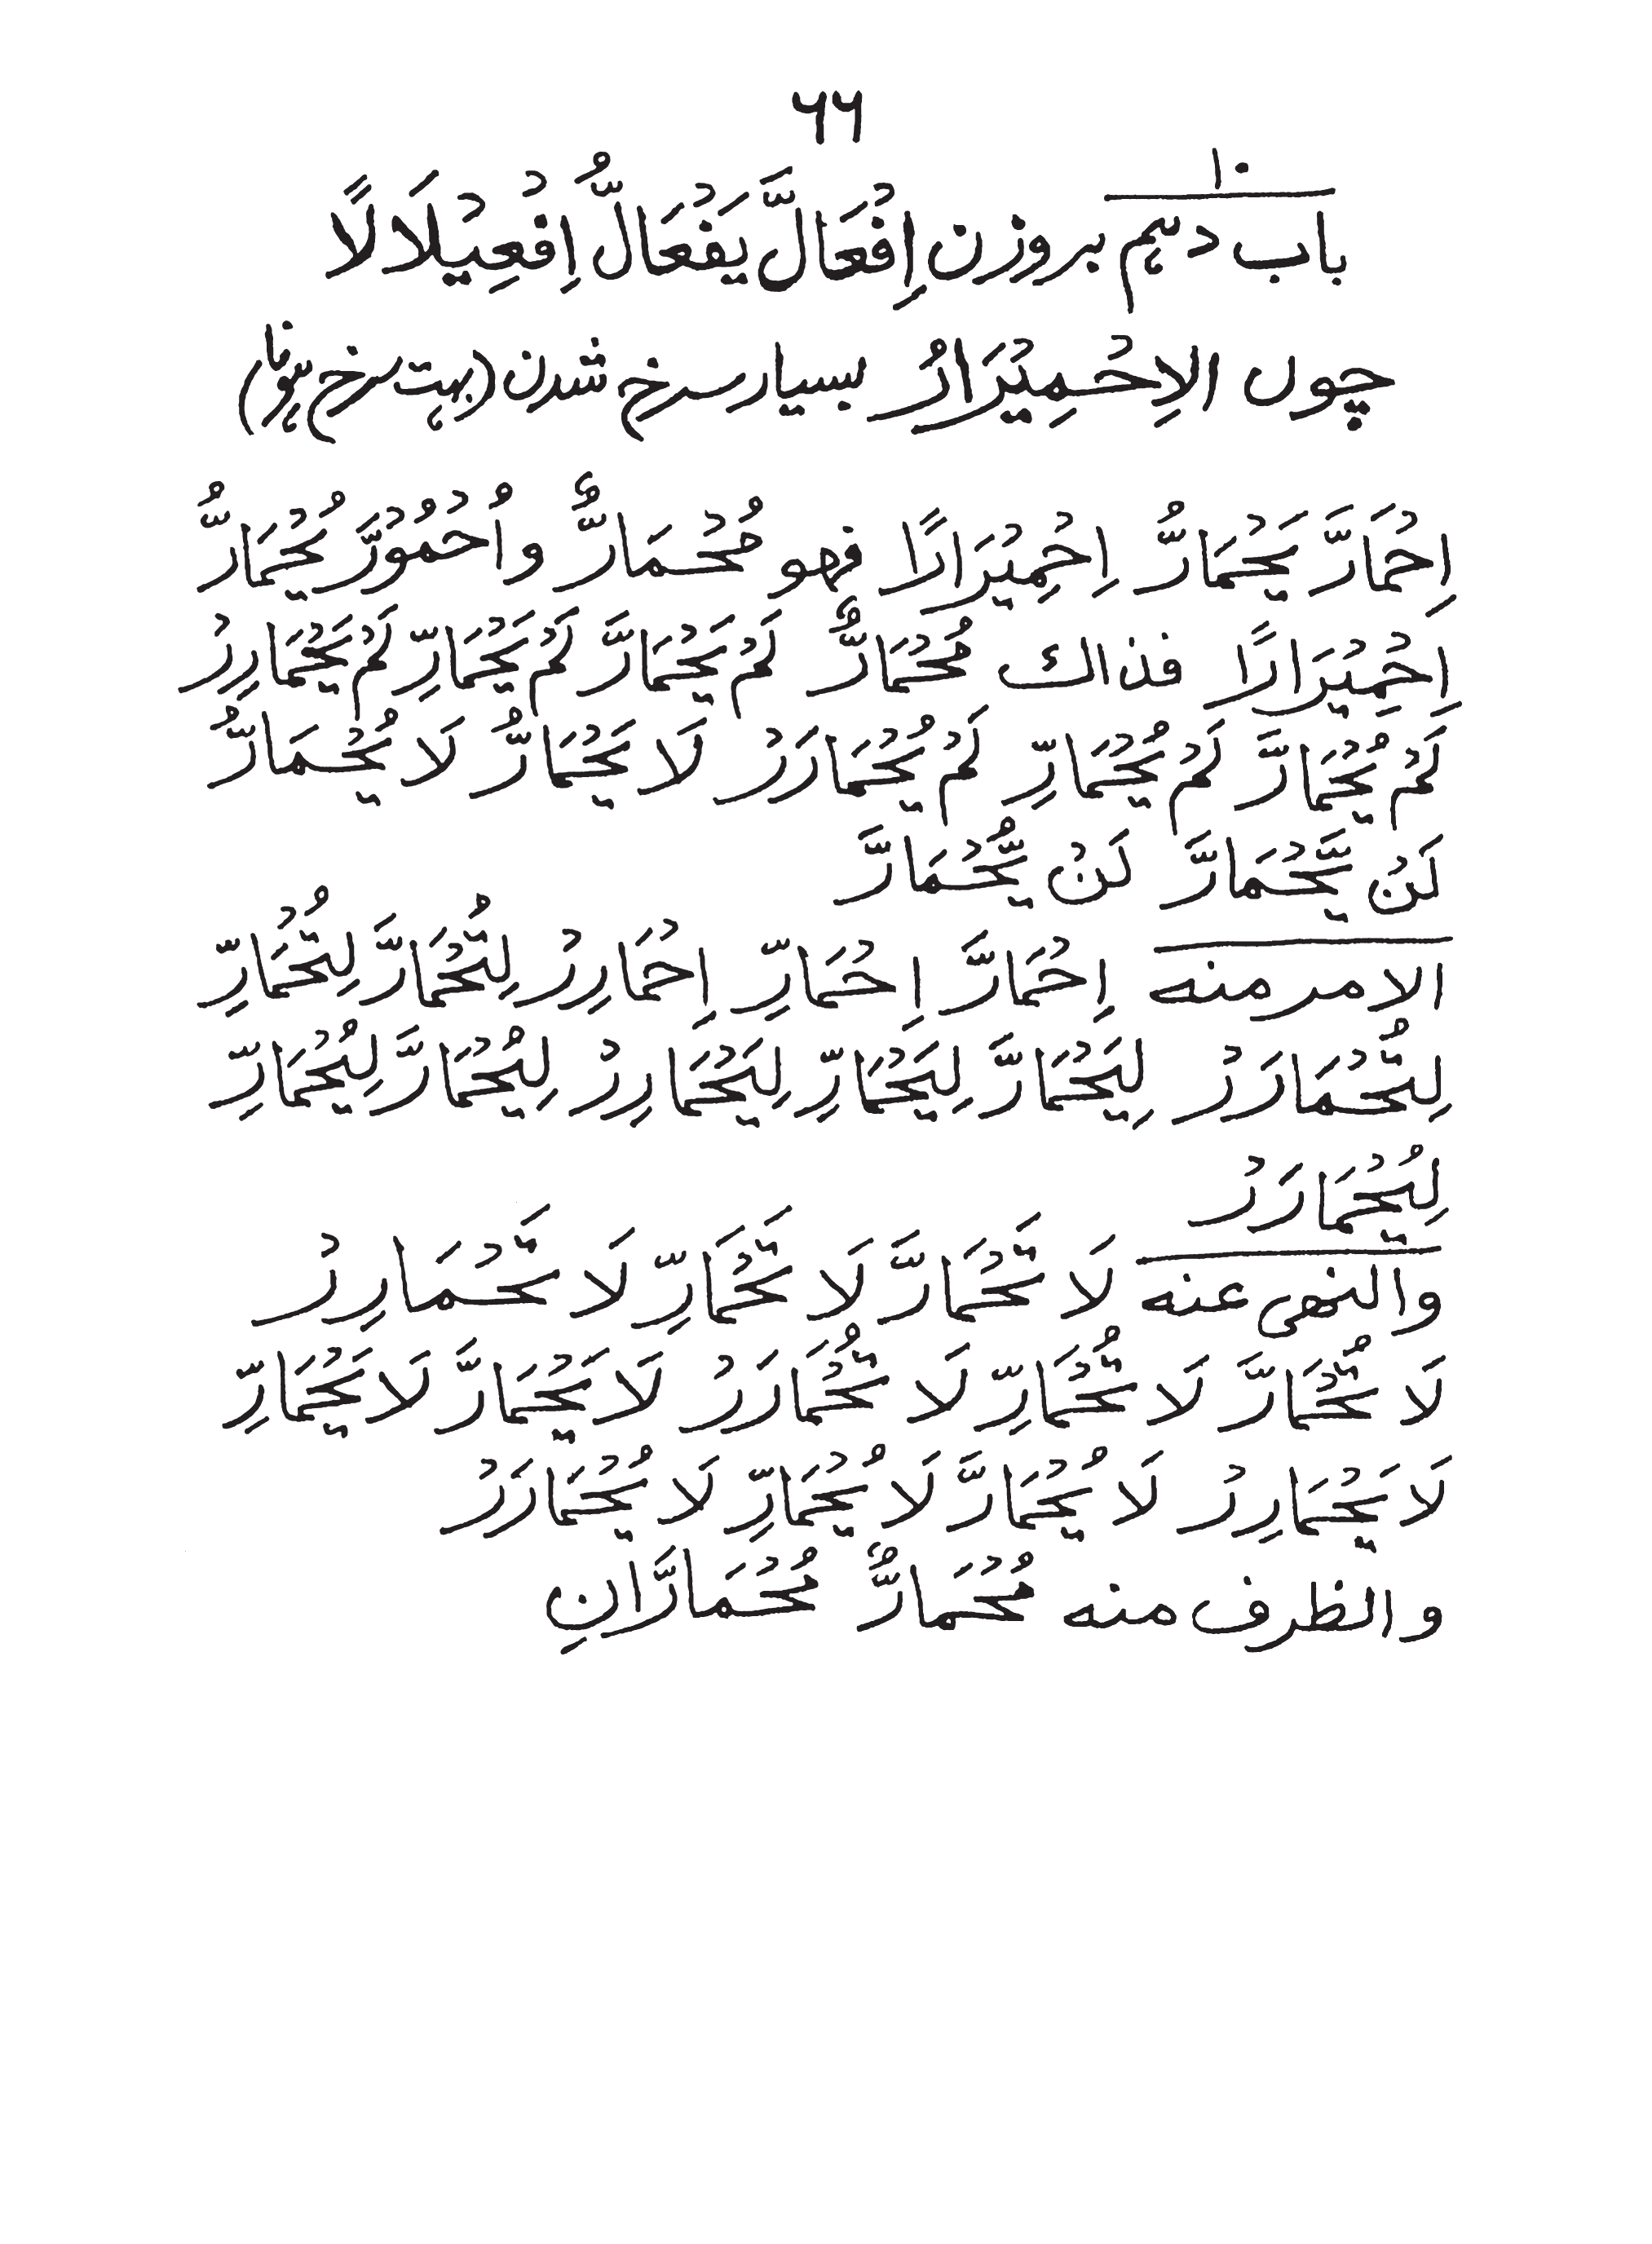 ۶۶
۱۰
باب دہم بروزن اِفْعَالَّ يَفْعَالُّ اِفْعِيْلَالًا
چوں الِاحْمِيْرَارُ بسیار سرخ شدن (بہت سرخ ہونا)
اِحْمَارَّ يَحْمَارُّ اِحْمِيْرَارًا فهو مُحْمَارٌّ و اُحْمُوْرَّ يُحْمَارُّ
اِحْمِيْرَارًا فذاك مُحْمَارٌّ لَمْ يَحْمَارَّ لَمْ يَحْمَارِّ لَمْ يَحْمَارِرْ
لَمْ يُحْمَارَّ لَمْ يُحْمَارِّ لَمْ يُحْمَارَرْ لَا يَحْمَارُّ لَا يُحْمَارُّ
لَنْ يَّحْمَارَّ لَنْ يُّحْمَارَّ
الامر منه اِحْمَارَّ اِحْمَارِّ اِحْمَارِرْ لِتُحْمَارَّ لِتُحْمَارِّ
لِتُحْمَارَرْ لِيَحْمَارَّ لِيَحْمَارِّ لِيَحْمَارِرْ لِيُحْمَارَّ لِيُحْمَارِّ
لِيُحْمَارَرْ
والنهى عنه لَا تَحْمَارَّ لَا تَحْمَارِّ لَا تَحْمَارِرْ
لَا تُحْمَارَّ لَا تُحْمَارِّ لَا تُحْمَارَرْ لَا يَحْمَارَّ لَا يَحْمَارِّ
لَا يَحْمَارِرْ لَا يُحْمَارَّ لَا يُحْمَارِّ لَا يُحْمَارَرْ
والظرف منه مُحْمَارٌّ مُحْمَارَّانِ